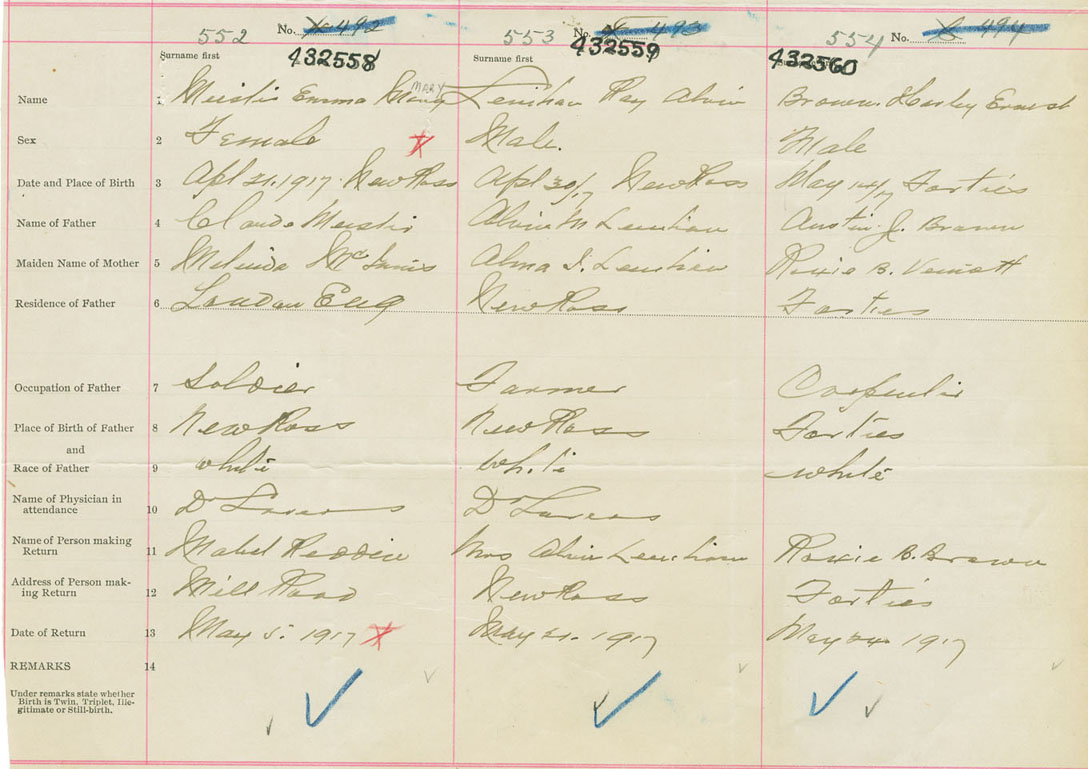 552 No. 492 553 No. 493 554 No. 494
Surname first 432558 Surname first 432559 432560
Name 1 Meistir Emma Mary MARY Lenihan Ray Alvin Brown Harley Ernest
Sex 2 Female Male. Male
Date and Place of Birth 3 Apl 21. 1917. New Ross Apl 30/17 New Ross May 14/17 Forties
Name of Father 4 Claude Meistir Alvin M Lenihan Austin J. Brown
Maiden Name of Mother 5 Melinda McInnis Alma I. Lenihan Roxie B. Veinott
Residence of Father 6 London Eng New Ross Forties
Occupation of Father 7 Soldier Farmer Carpenter
Place of Birth of Father 8 New Ross New Ross Forties
and
Race of Father 9 white white white
Name of Physician in
attendance 10 Dr Dr
Name of Person making
Return 11 Mabel Reddin Mrs Alvin Lenihan Roxie B. Brown
Address of Person mak-
ing Return 12 Mill Road New Ross Forties
Date of Return 13 May 5. 1917 May 21. 1917 May 24 1917
REMARKS 14
Under remarks state whether
Birth is Twin, Triplet, Ille-
gitimate or Still-birth.